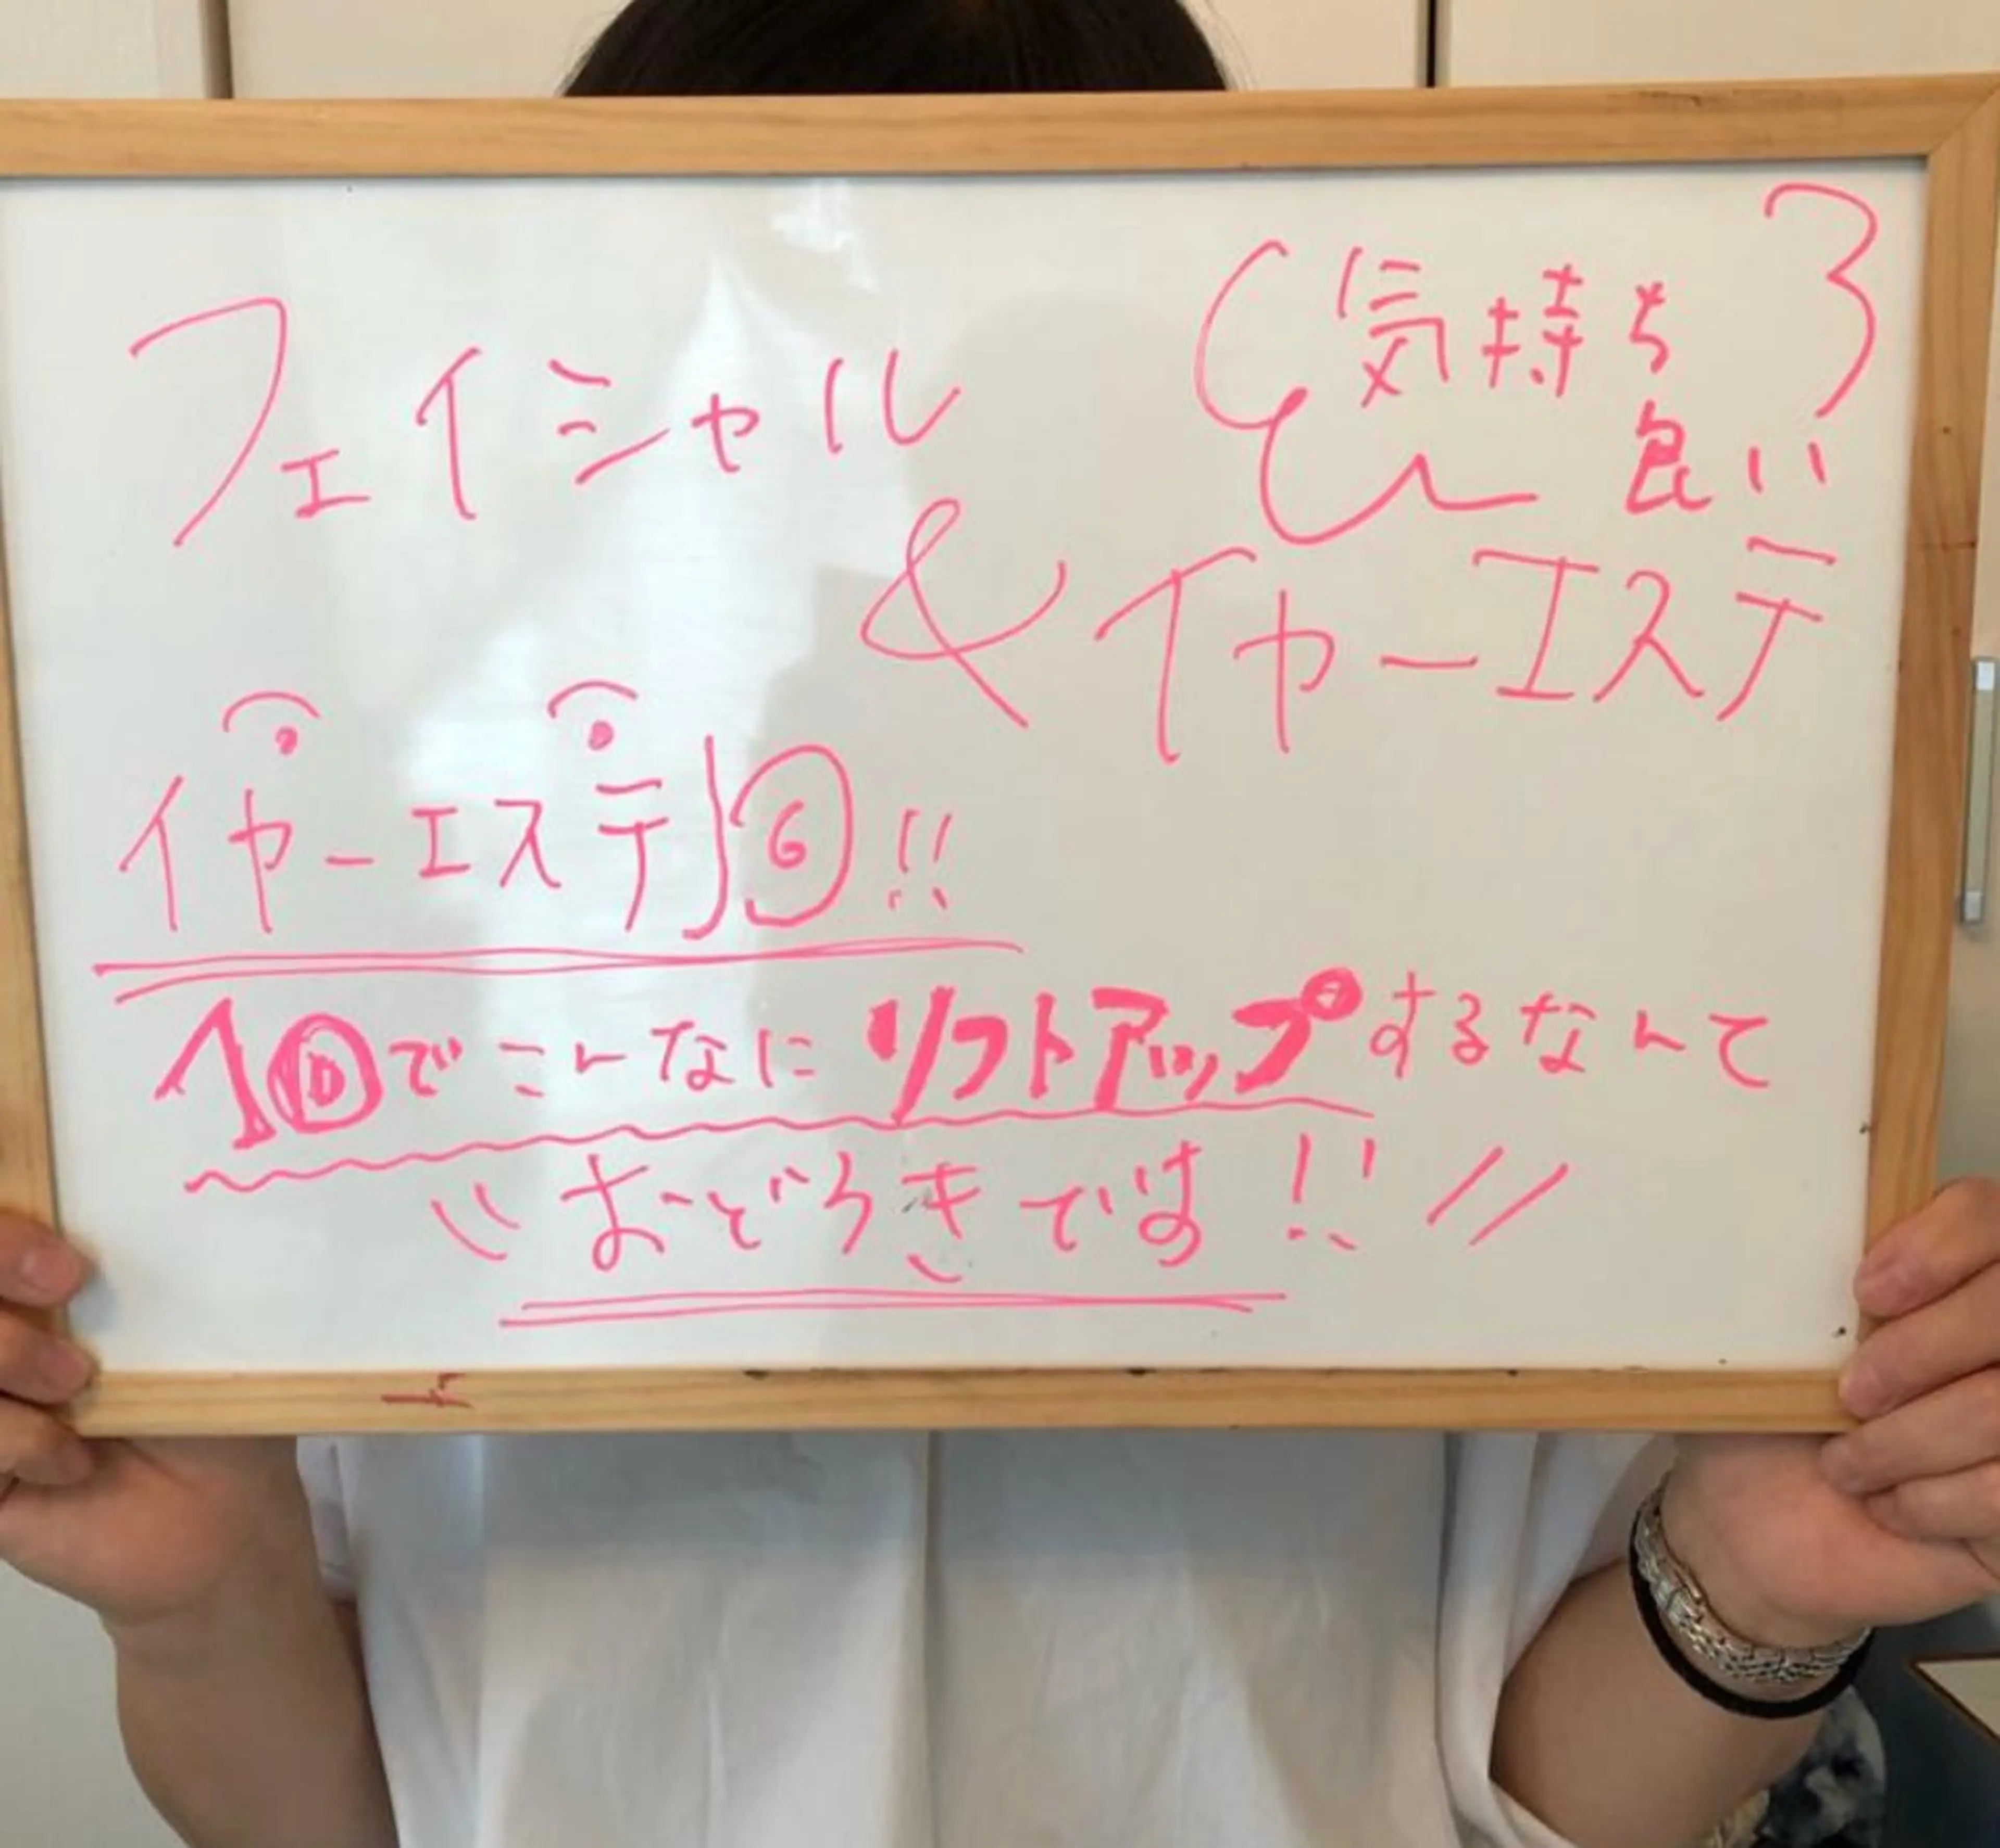 フェイシャル
気持ち
良い
& イヤーエステ
イヤーエステ !!
1回でこんなにリフトアップするなんて
おどろきです!!